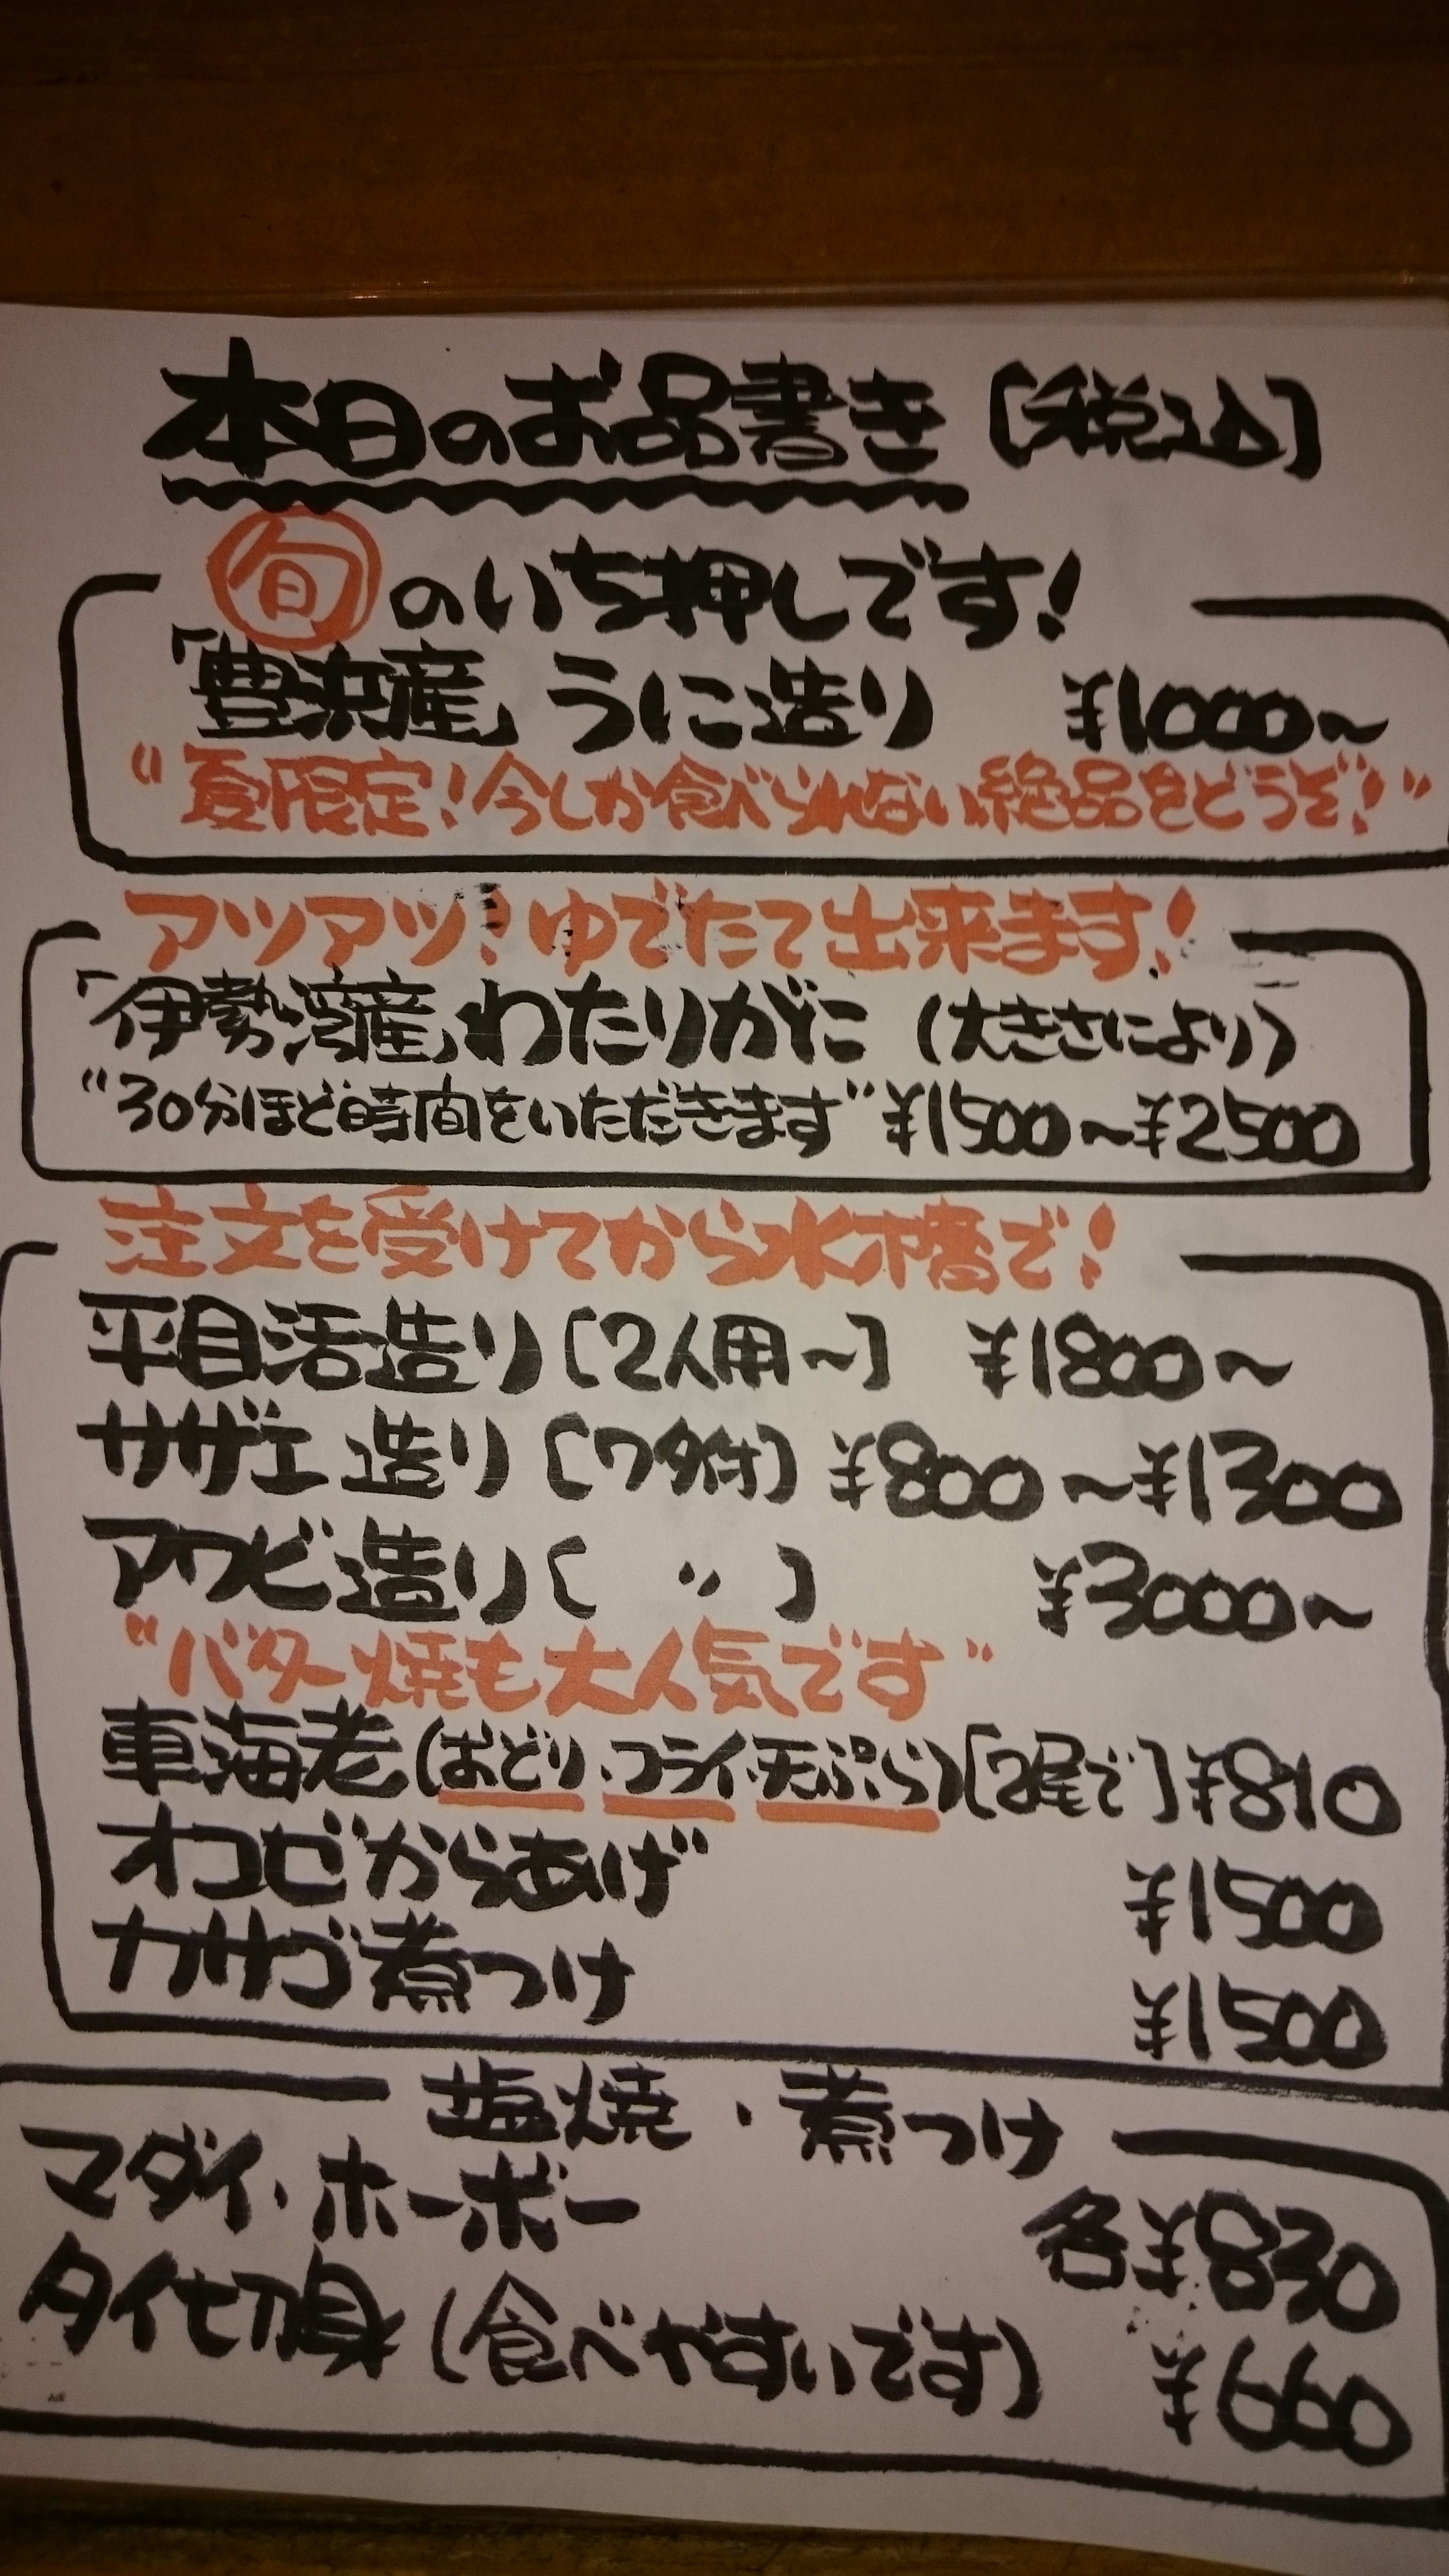 本日のお品書き [税込]
旬のいち押しです!
「豊浜産」うに造り ¥1000~
"夏限定!今しか食べられない絶品をどうぞ!"
アツアツ!ゆでたて出来ます!
「伊勢湾産」わたりがに (大きさにより)
"30分ほど時間をいただきます" ¥1500~¥2500
注文を受けてから水槽で!
平目活造り [2人用~] ¥1800~
サザエ造り [ワタ付] ¥800~¥1300
アワビ造り [ 〃 ] ¥3000~
"バター焼も大人気です"
車海老 (おどり・フライ・天ぷら) [2尾で] ¥810
オコゼからあげ ¥1500
カサゴ煮つけ ¥1500
塩焼・煮つけ
マダイ・ホーボー 各¥830
タイ切身 (食べやすいです) ¥660